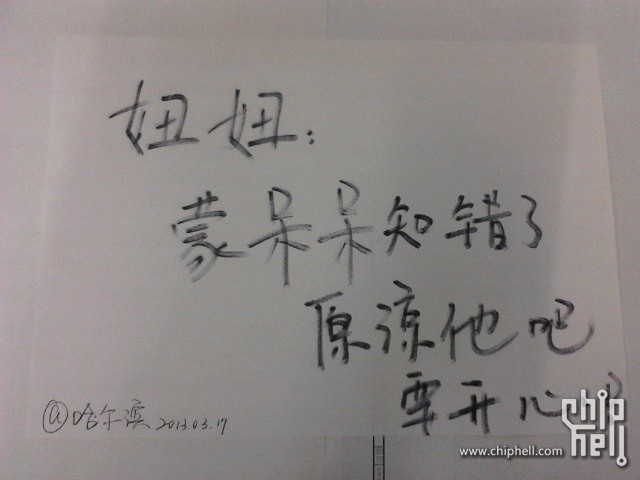 妞妞:
蒙呆呆知错了
原谅他吧
要开心
@哈尔滨 2013.03.17
chip
hell
www.chiphell.com